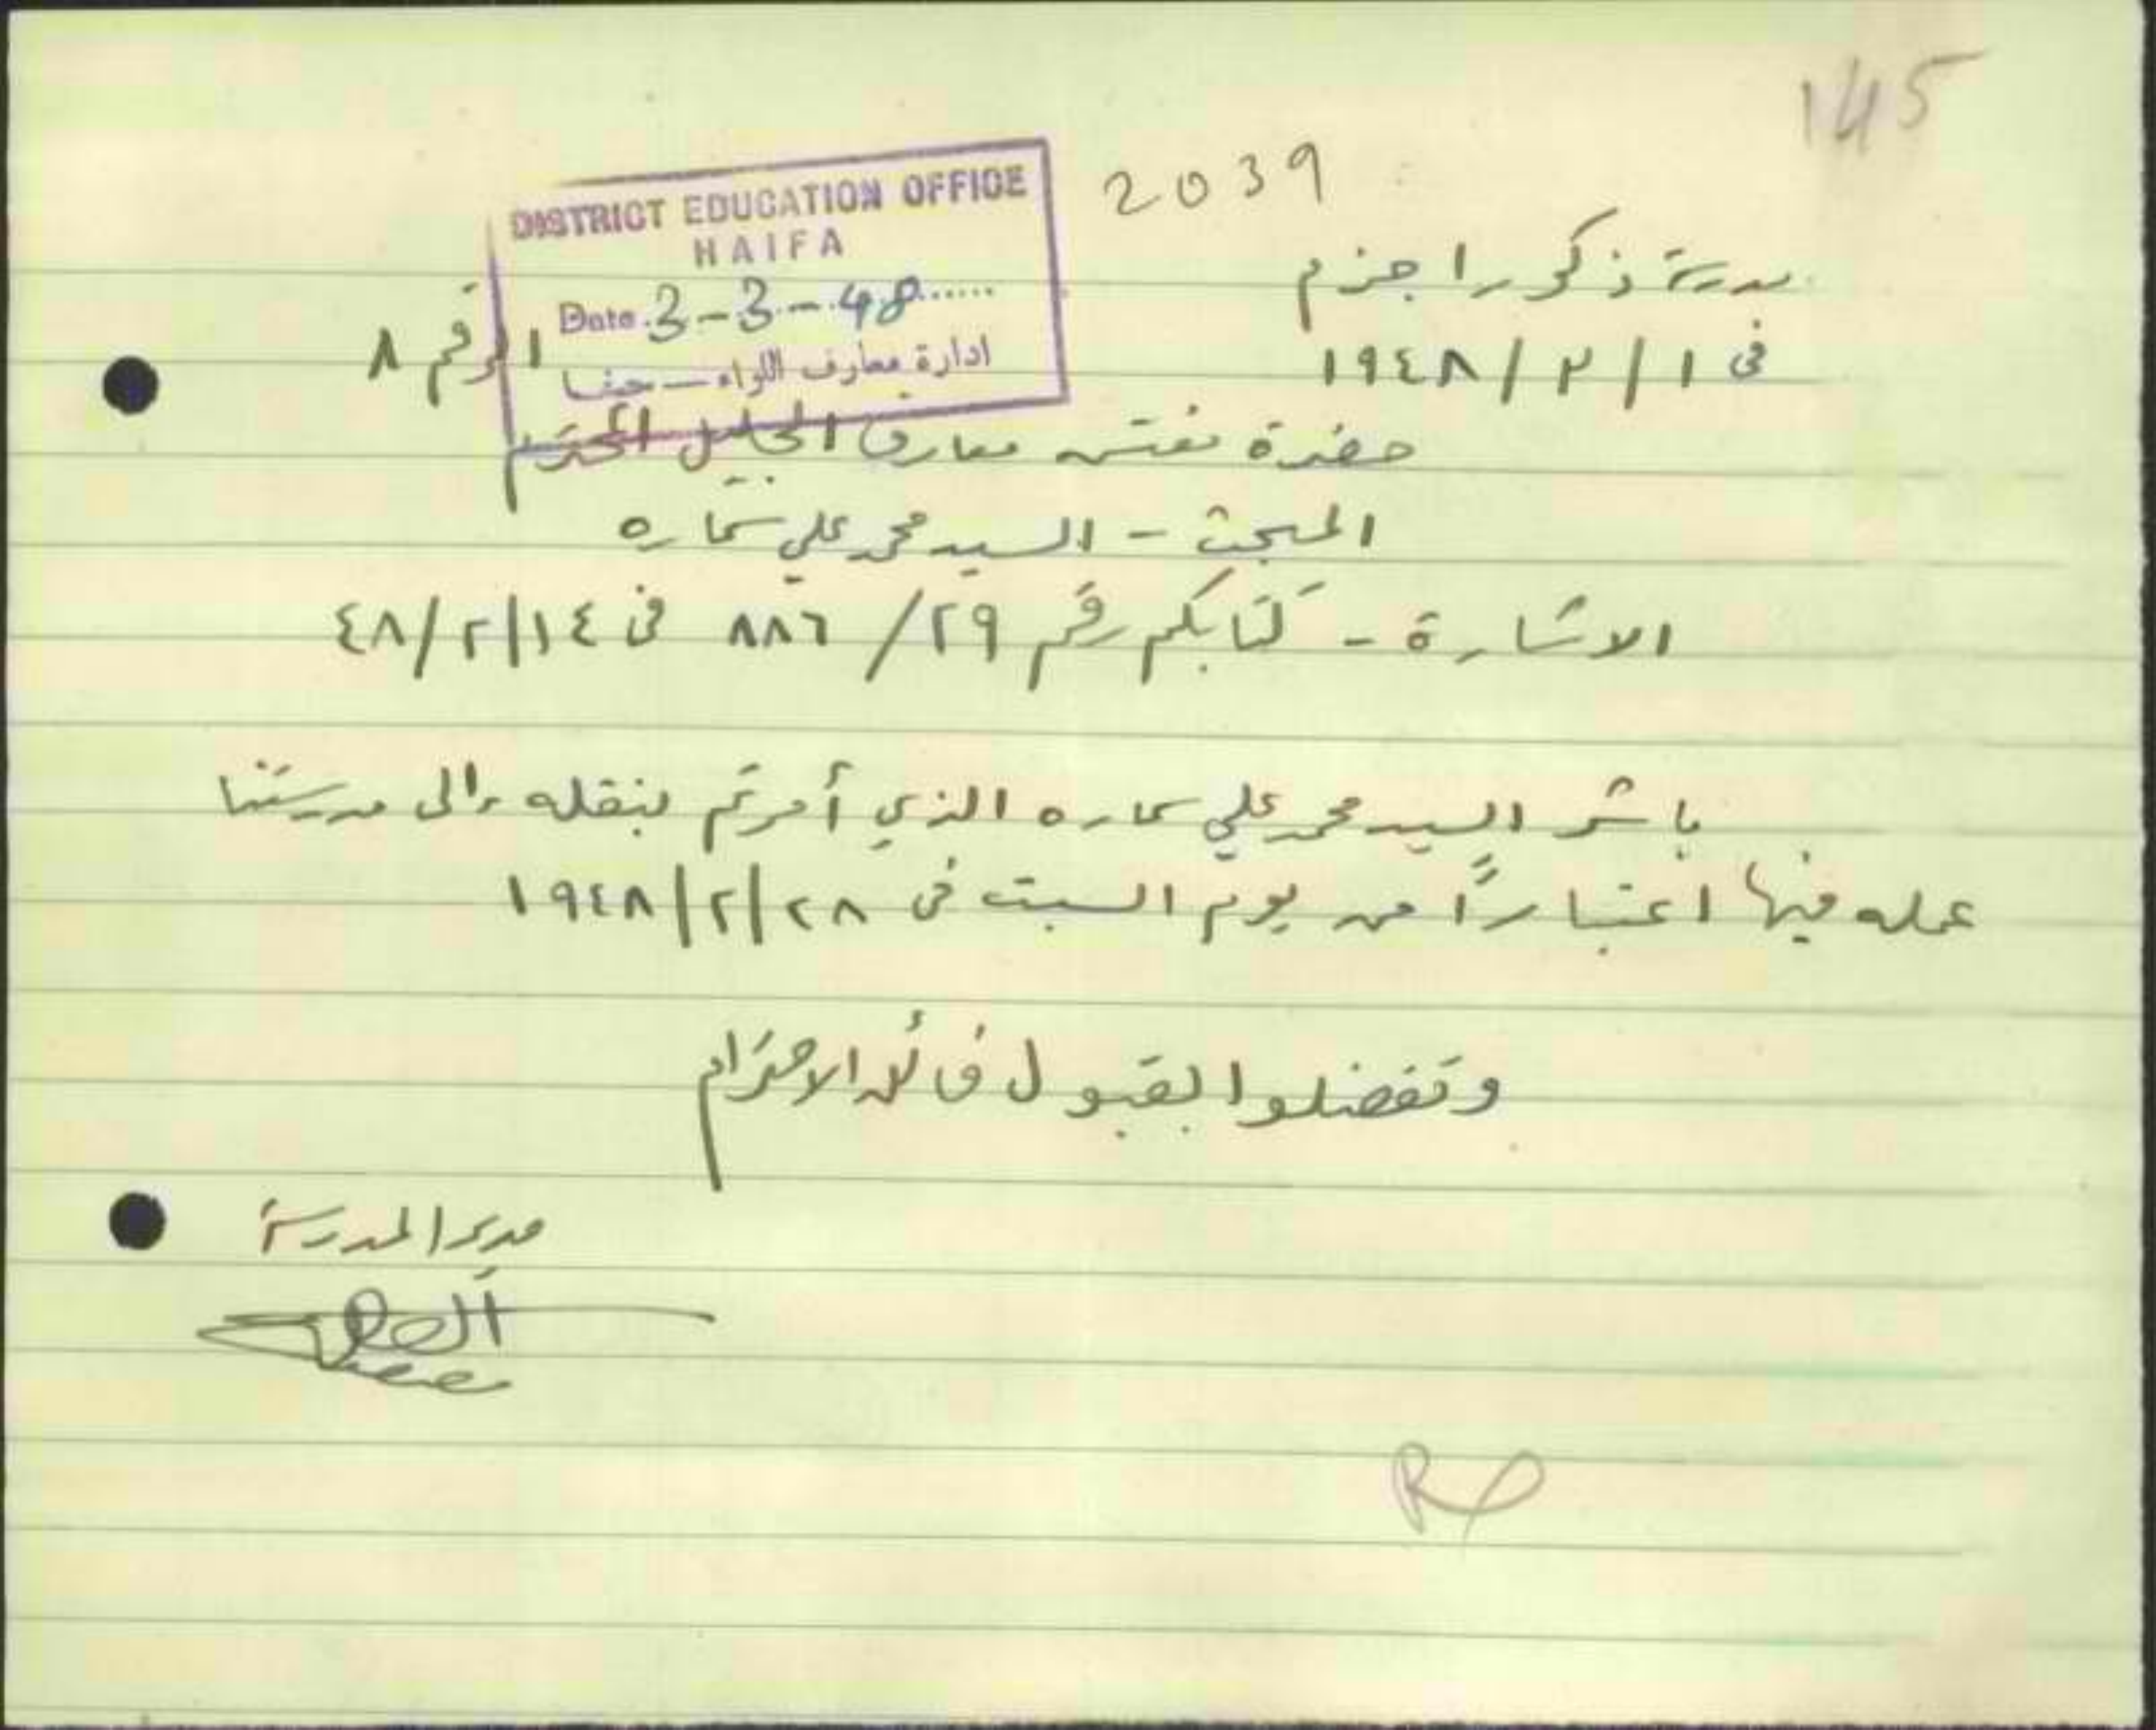 145
2039
DISTRICT EDUCATION OFFICE
HAIFA
Date 3-3-48
ادارة معارف اللواء - حيفا
مدرسة ذكور اجزم
في ١ / ٣ / ١٩٤٨
الرقم ٨
حضرة مفتش معارف الجليل المحترم
المبحث - السيد محمد علي سماره
الاشارة - كتابكم رقم ٢٩/ ٨٨٦ في ١٤/٢/٤٨
باشر السيد محمد علي سماره الذي أمرتم بنقله إلى مدرستنا
عمله فيها اعتباراً من يوم السبت في ٢٨/٢/١٩٤٨
وتفضلوا بقبول فائق الاحترام
مدير المدرسة